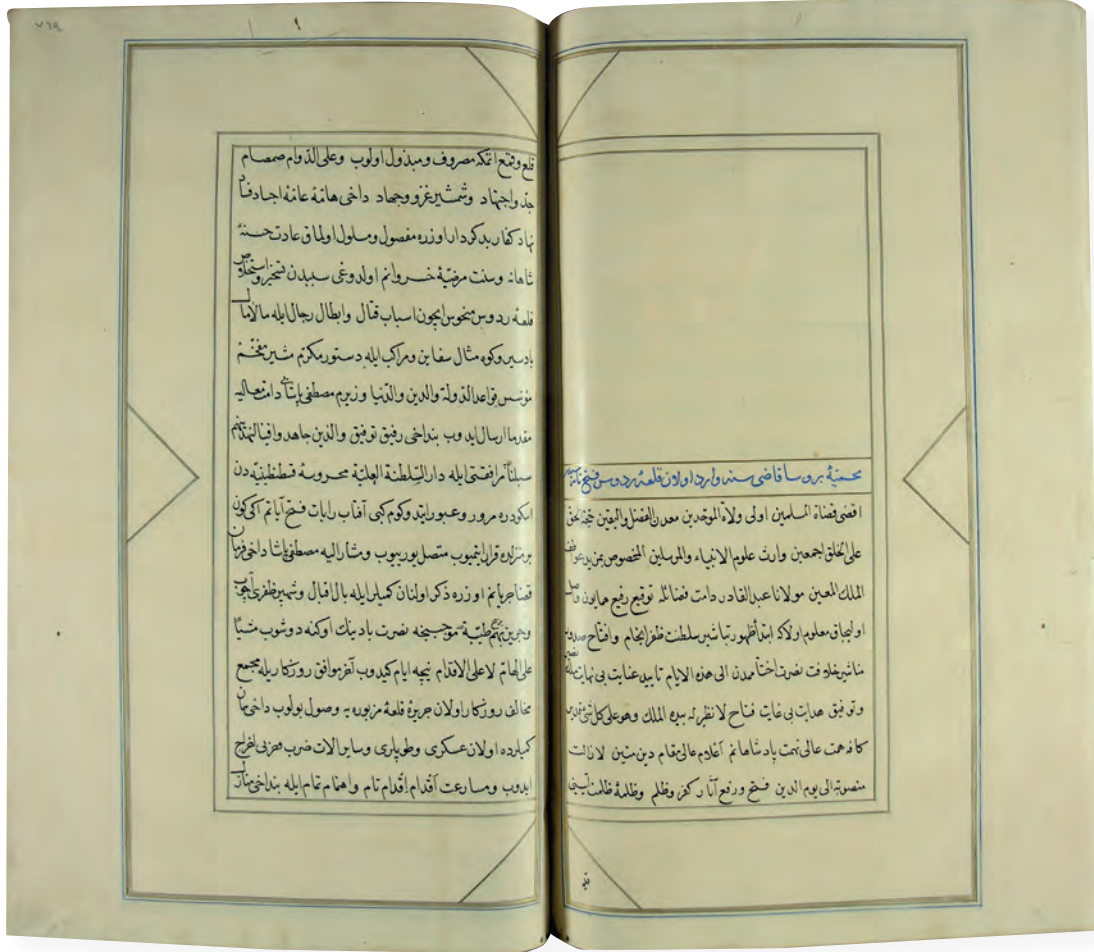 محمیۀ بروسا قاضی سنه وارد اولان قلعۀ ردوس فتح نامۀ
اقضی قضاة المسلمین اولی ولاة الموحدین معدن الفضل والیقین حجة الحق
علی الخلق اجمعین وارث علوم الانبیاء والمرسلین المختصوص بمزید عواطف
الملك المعین مولانا عبدالقادر دامت فضائله توقیع رفیع همایون واصل
اولیجاق معلوم اولا که ابتدأ ظهور تباشیر سلطنت ظفر انجام وافتتاح صدور
مناشیر خلافت نصرت اختتامدن الی هذه الایام تایید عنایت بی نهایت
وتوفیق هدایت بی غایت فتاح لا نظیر له بیده الملك وهو علی کل شئ قدیر
کافه همت عالی نهمت پادشاهانم اعلام عالی مقام دین متین لا زالت
منصوبة الی یوم الدین فتح ورفع آثار کفر وظلم وظلمۀ ظلمت
قلع وقمع اتمکه مصروف ومبذول اولوب وعلی الدوام صمصام
جد واجتهاد وشمشیر غزو وجهاد داخی هامۀ عامۀ اجساد فساد
نهاد کفار بدکردار اوزره مفصول ومسلول اولماق عادت حسنۀ
شاهانه وسنت مرضیۀ خسروانم اولدوغی سببدن تسخیر واستخلاص
قلعۀ ردوس منحوس ایچون اسباب قتال وابطال رجال ایله مالامال
بادسیر وکوه مثال سفاین ومراکب ایله دستور مکرم مشیر مفخم
مؤسس قواعد الدولة والدین والدنیا وزیرم مصطفی پاشا دامت معالیه
مقدما ارسال ایدوب بنداخی رفیق توفیق والذین جاهدوا فینا لنهدینهم
سبلنا مرافقتی ایله دار السلطنة العلیة محروسۀ قسطنطنیه دن
اسکودره مرور وعبور ایتدوکوم کبی آفتاب رایات فتح آیاتم اکی کون
بر منزلده قرار ایتمیوب متصل یوریوب ومشار الیه مصطفی پاشا داخی فرمان
قضا جریانم اوزره ذکر اولنان کمیلر ایله بال اقبال وشهپر ظفری آچوب
وجرین بهم بریح طیبة موجبنجه نصرت بادینك اوکنه دوشوب مشیا
علی الهام لا علی الاقدام نیچه ایام کیدوب آخر موافق روزکار ریله مجمع
مخالف روزکار اولان جزیرۀ قلعۀ مزبوره یه وصول بولوب داخی همان
کمیلرده اولان عسکری وطوپلری وسایر الات ضرب وحربی اخراج
ایدوب ومسارعت اقدام اقدام تام واهتمام تمام ایله بنداخی منازل